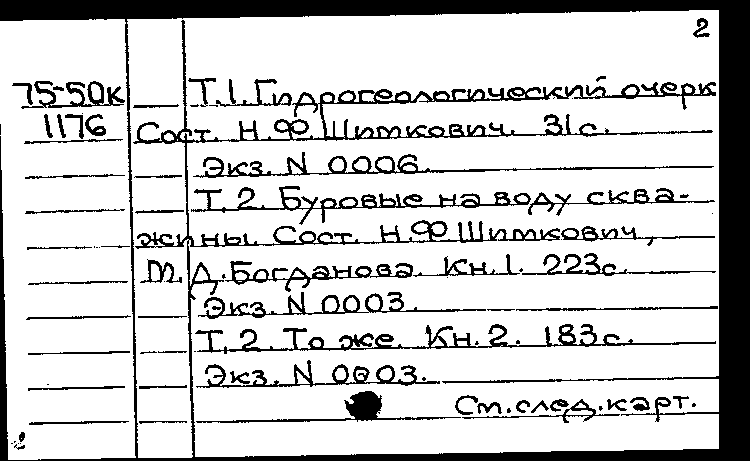 2
75-50к Т.1. Гидрогеологический очерк
1176 Сост. Н.Ф. Шимкович. 31с.
Экз. N 0006.
Т. 2. Буровые на воду сква-
жины. Сост. Н.Ф. Шимкович,
М.Д. Богданова. Кн. 1. 223с.
Экз. N 0003.
Т. 2. То же. Кн. 2. 183с.
Экз. N 0003.
См. след. карт.